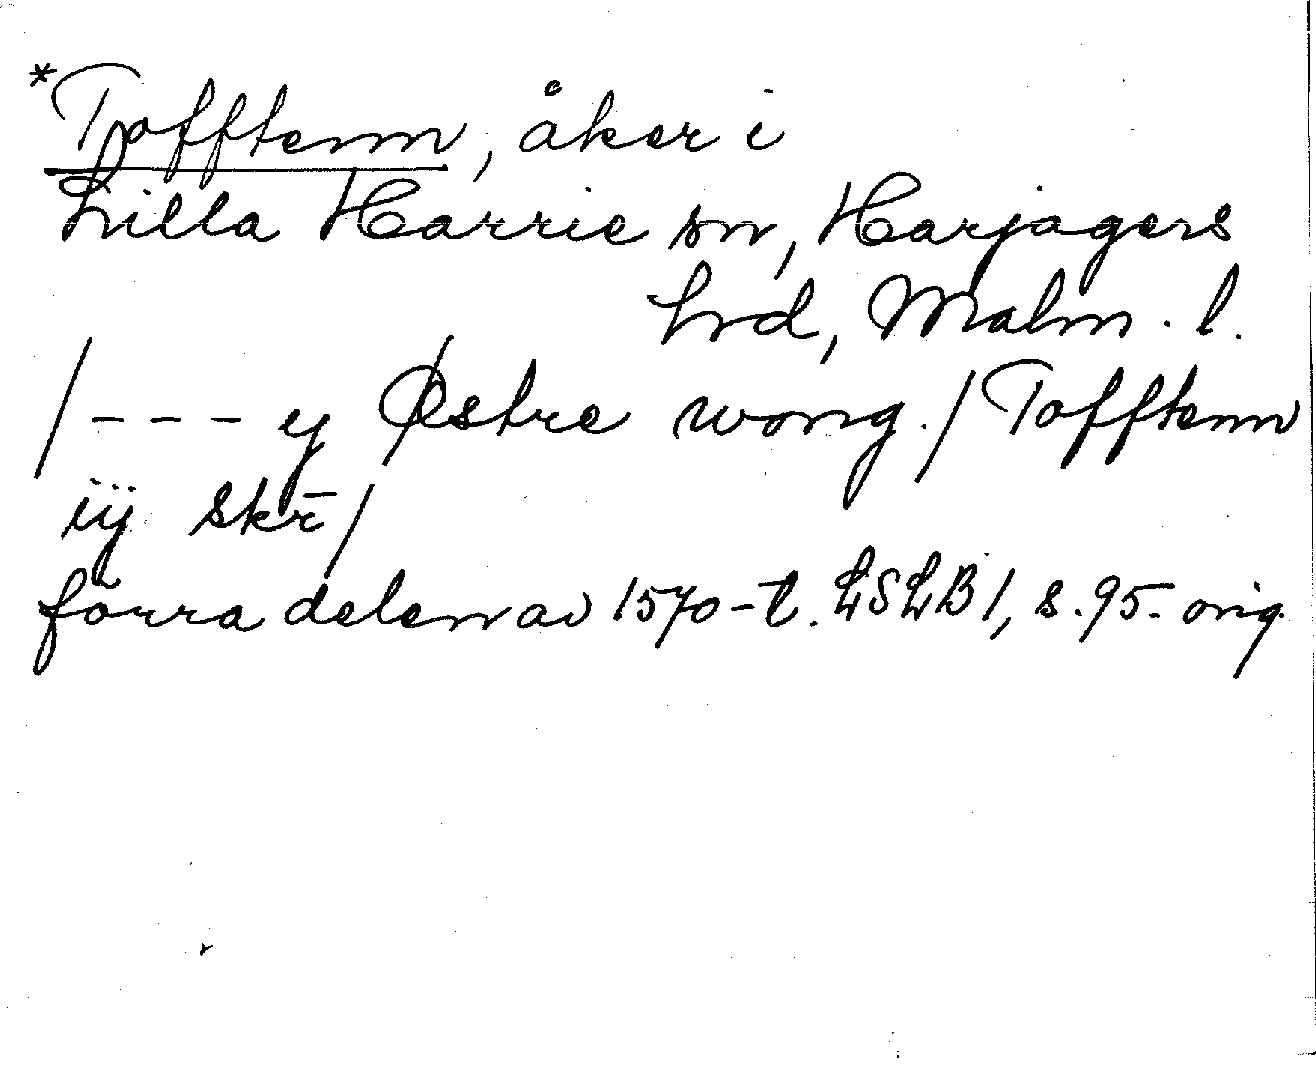 *Tofftenn, åker i
Lilla Harrie sn, Harjagers
hrd, Malm. l.
/--- y Østre wong./ Tofftenn
iij skr̄/
förra delen av 1570-t. LSLB 1, s. 95. orig.